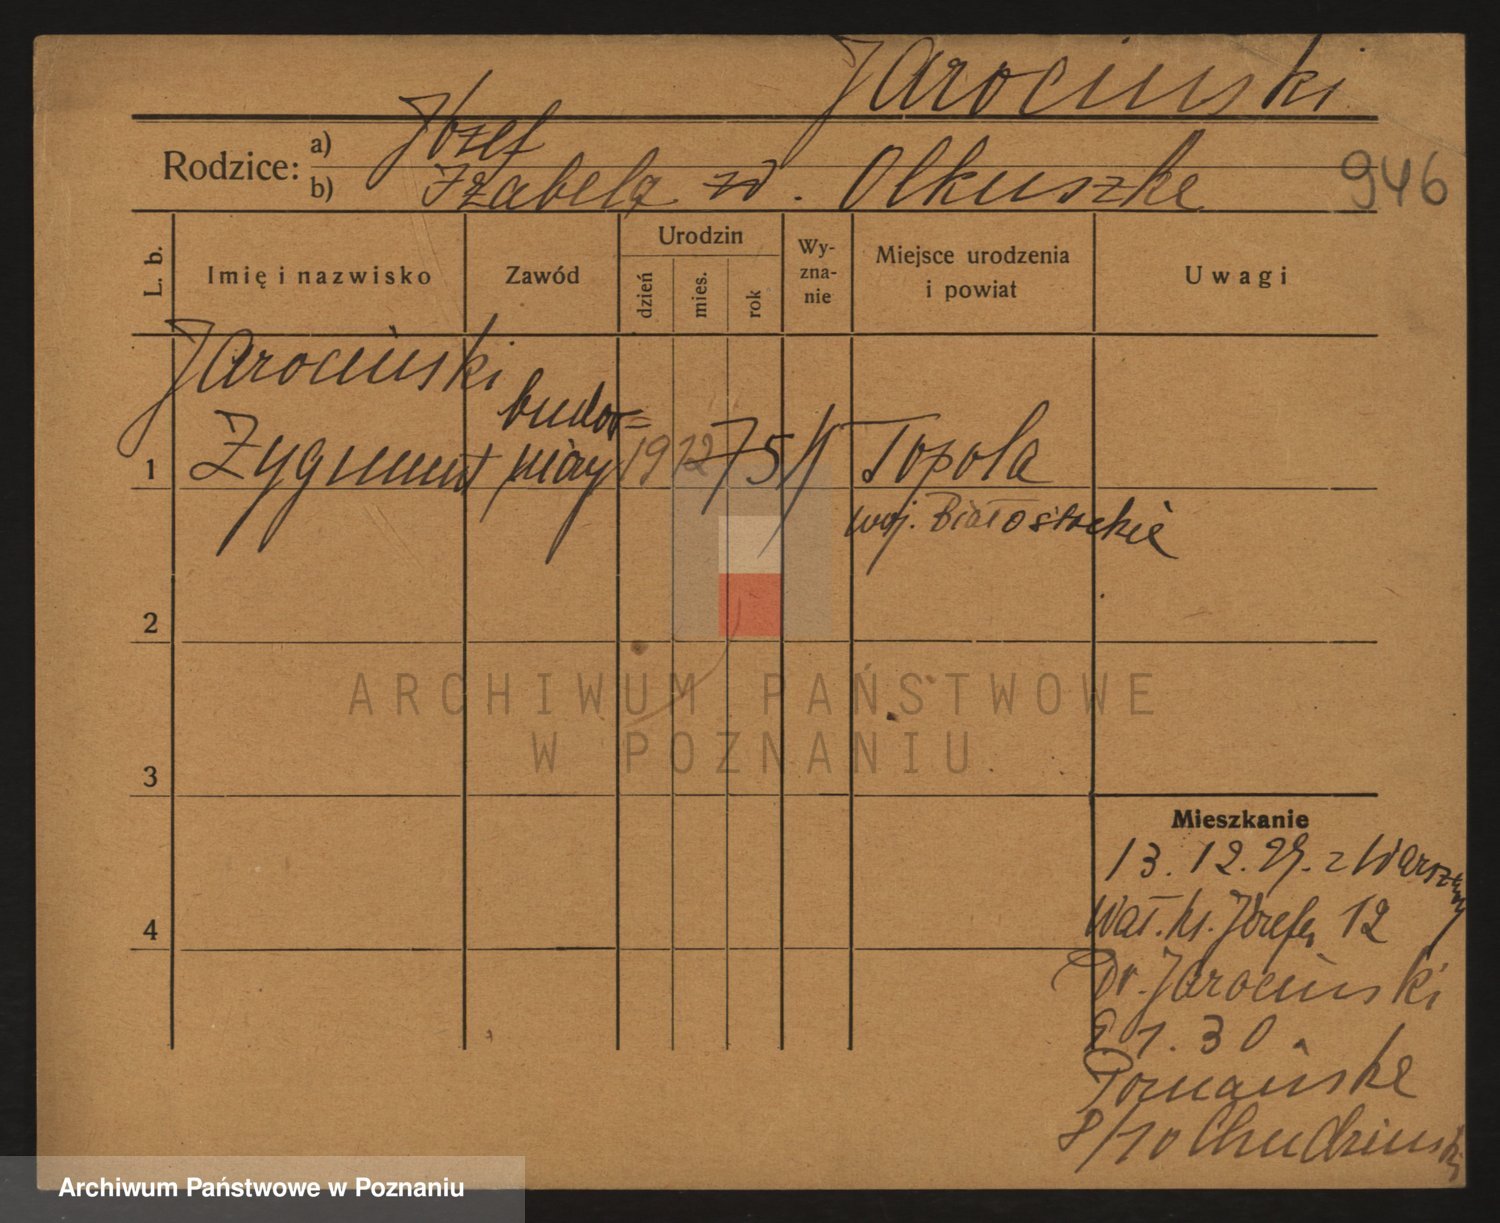 Jarociński
Rodzice:
a) Józef
b) Izabela zd. Olkuszke
946
L. b.
Imię i nazwisko
Zawód
Urodzin
dzień
mies.
rok
Wy-
zna-
nie
Miejsce urodzenia
i powiat
Uwagi
Jarociński
budow=
1 Zygmunt
niczy
19 12 75
Topola
woj. Białostockie
2
ARCHIWUM PAŃSTWOWE
W POZNANIU
3
Mieszkanie
13. 12. 29. z Warszawy
Wał. Kr. Józefa 12
4
Dr. Jarociński
1. 30.
Poznańska
8/10 Chudziński
Archiwum Państwowe w Poznaniu